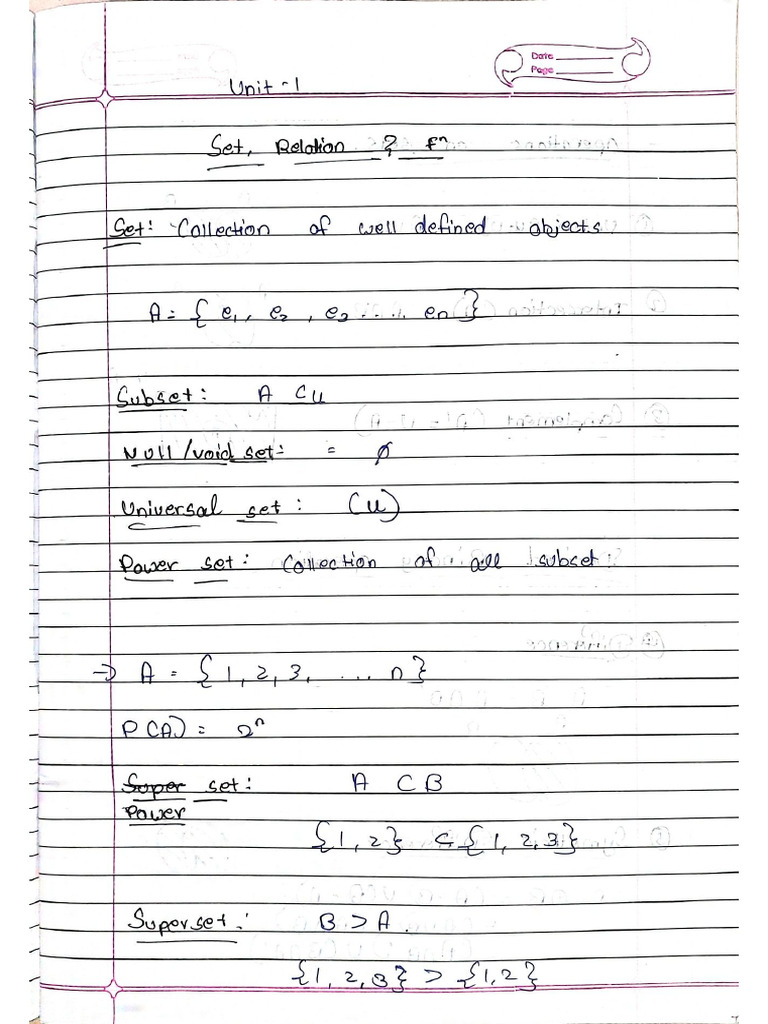 Date
Page
Unit -1
Set, Relation & fⁿ
Set: Collection of well defined objects.
A = { e₁, e₂, e₃ ..... en }
Subset: A ⊂ U
Null /void set:- = ϕ
Universal set : (U)
Power set : Collection of all subset:
→ A = { 1, 2, 3, .... n }
P(A) = 2ⁿ
Super set : A ⊂ B
Power
{1, 2} ⊂ {1, 2, 3}
Superset : B ⊃ A.
{1, 2, 3} ⊃ {1,2}